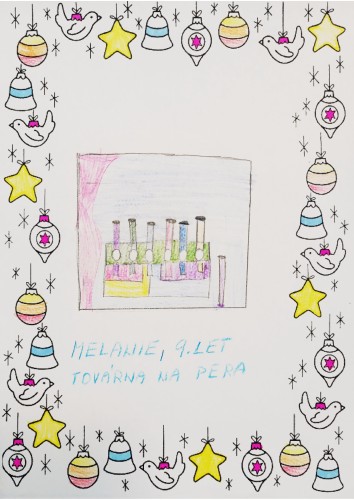 MELANIE, 9.LET
TOVÁRNA NA PERA